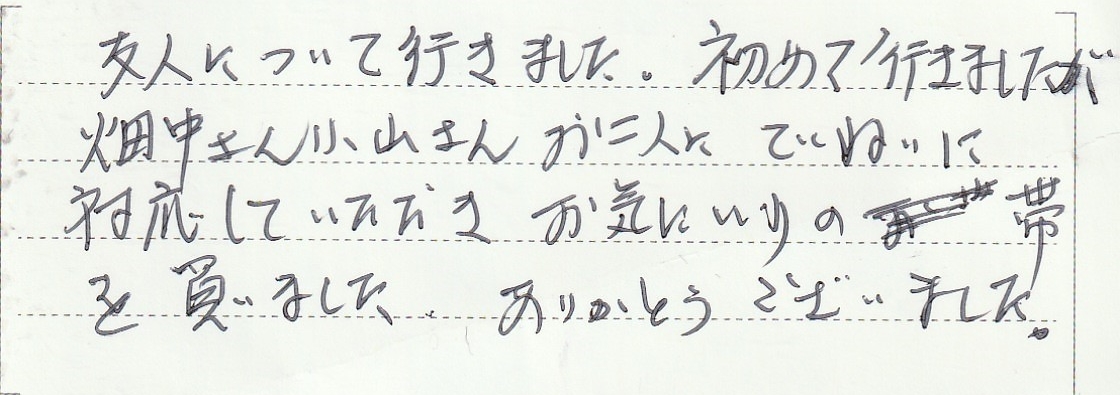 友人について行きました。初めて行きましたが
畑中さん小山さんお二人にていねいに
対応していただきお気にいりの帯
を買いました。ありがとうございました。